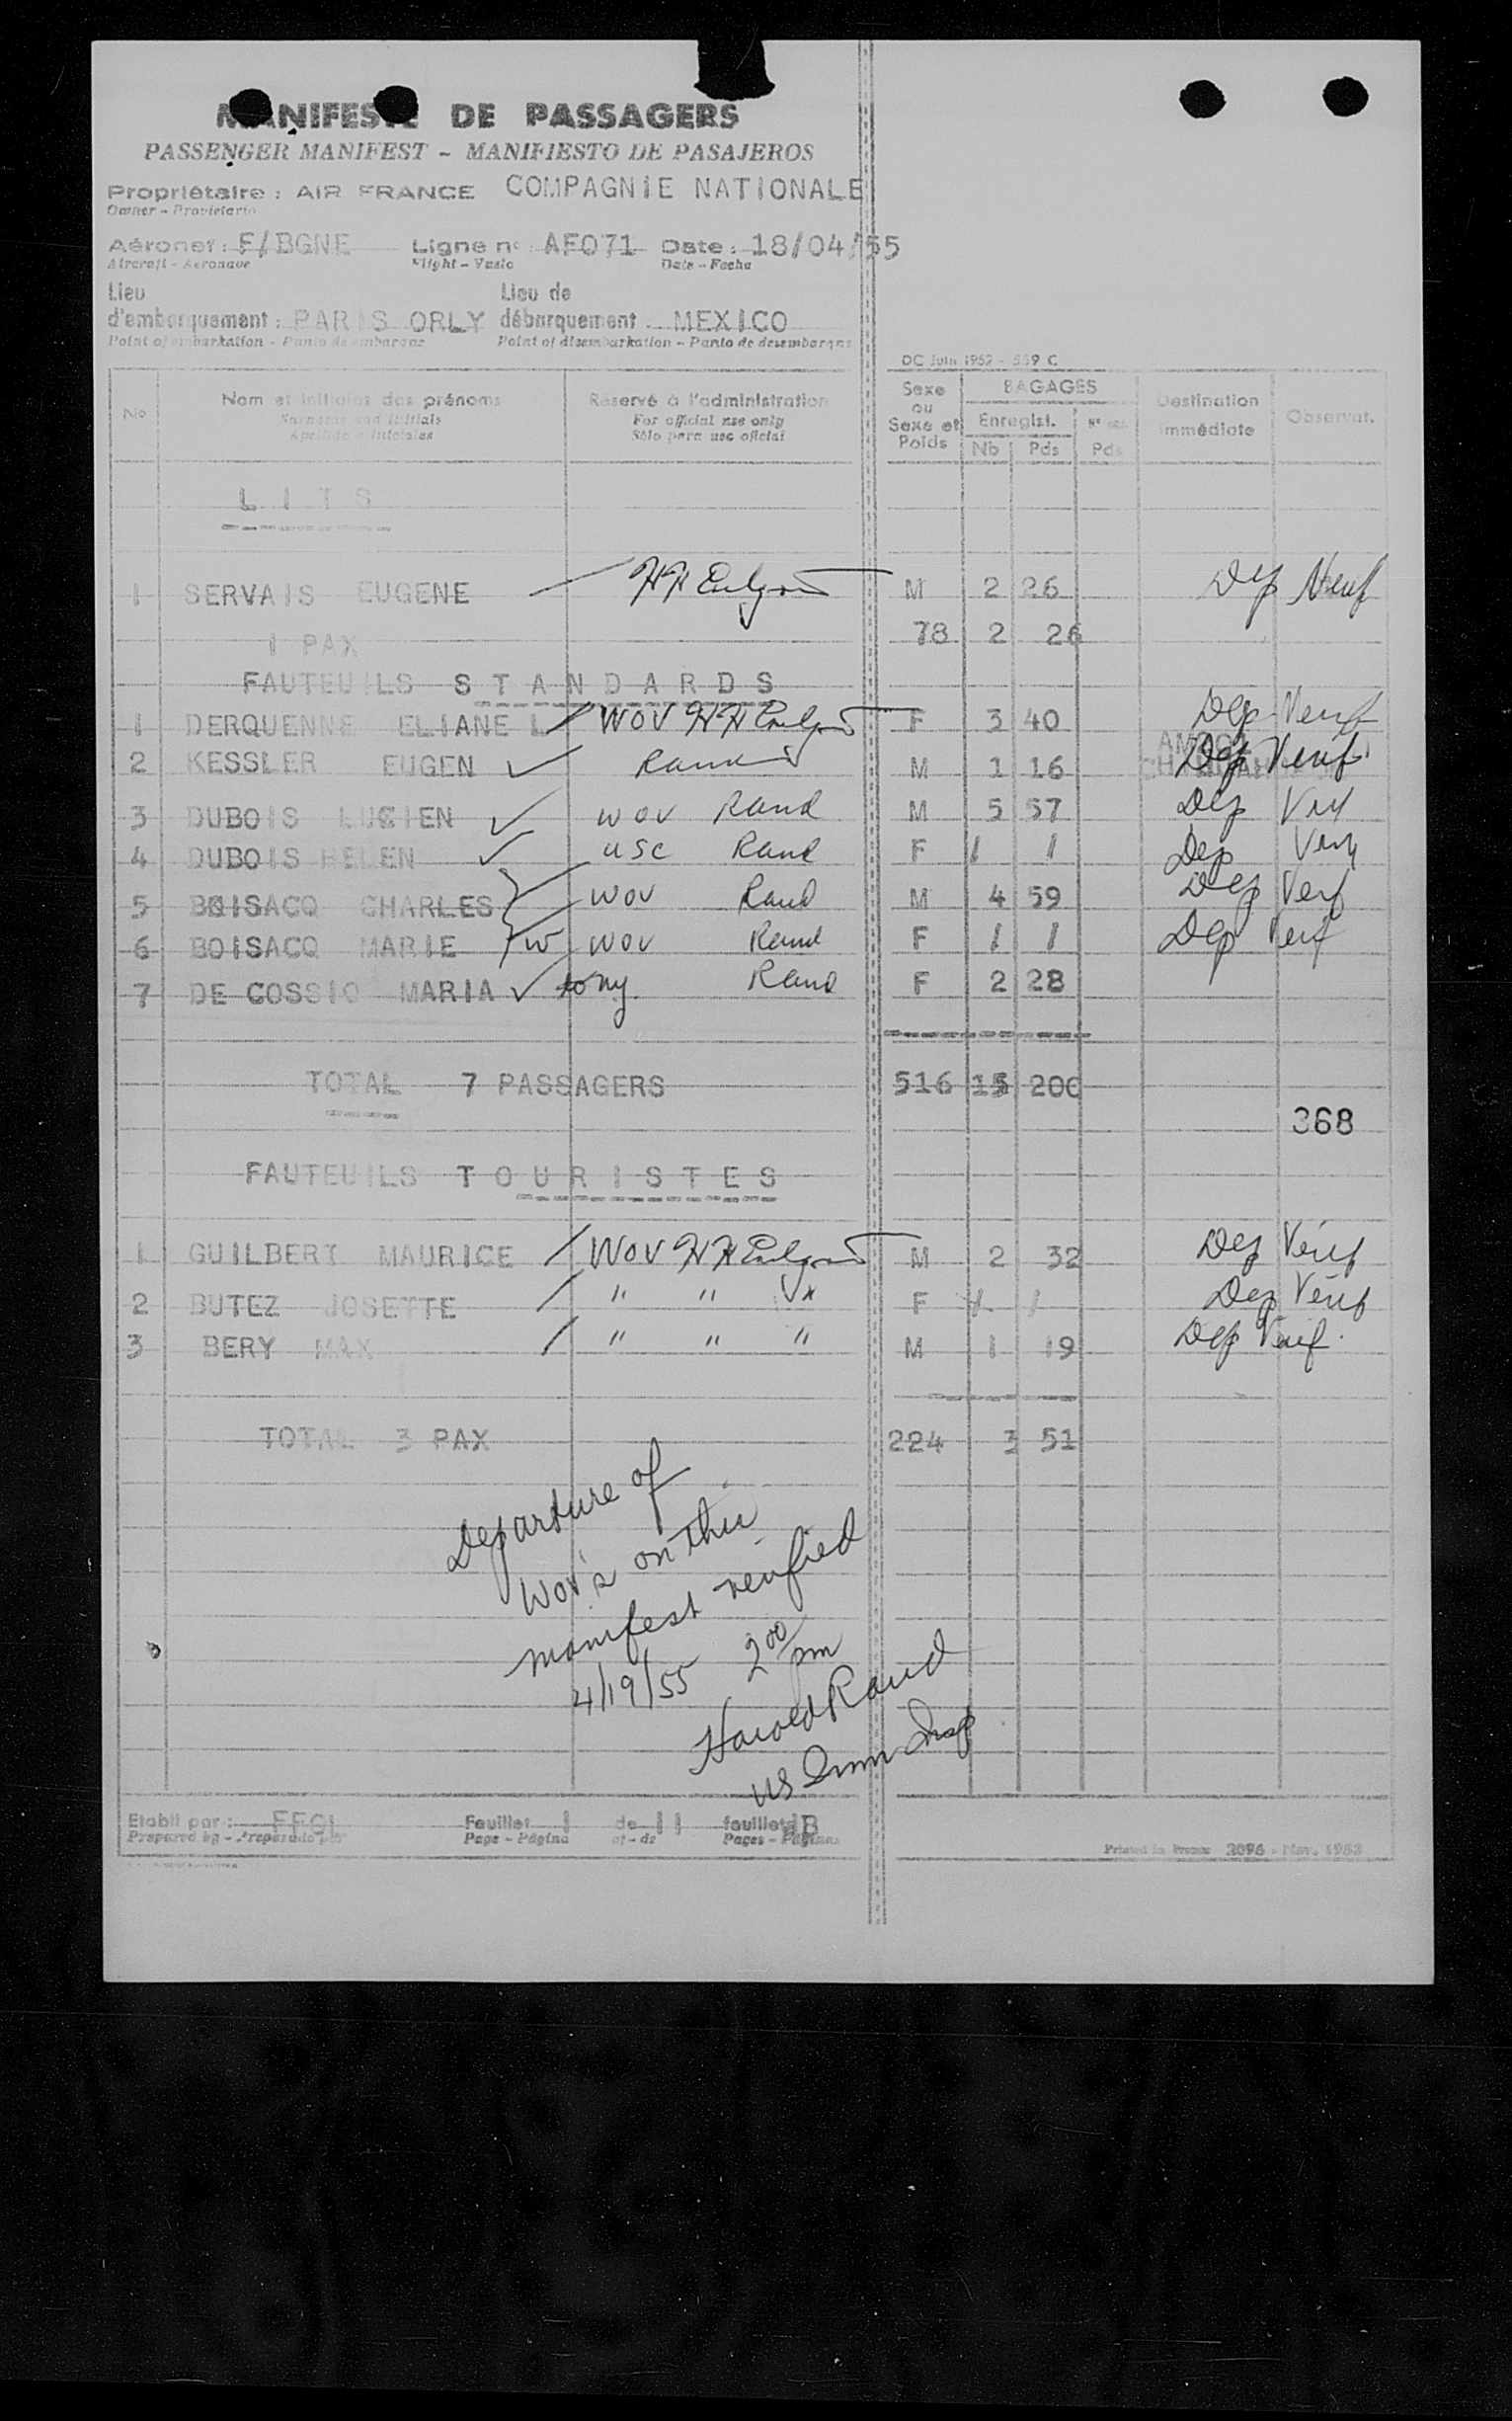 MANIFESTE DE PASSAGERS
PASSENGER MANIFEST - MANIFIESTO DE PASAJEROS
Propriétaire : AIR FRANCE COMPAGNIE NATIONALE
Owner - Propietario
Aéronef : F/BGNE Ligne n° AF071 Date : 18/04/55
Aircraft - Aeronave Flight - Vuelo Date - Fecha
Lieu Lieu de
d'embarquement : PARIS ORLY débarquement MEXICO
Point of embarkation - Punto de embarque Point of disembarkation - Punto de desembarque
DC Juin 1952 - 559 C
No Nom et initiales des prénoms Réservé à l'administration Sexe ou Sexe et Poids BAGAGES Destination immédiate Observat.
Surname and initials For official use only Enregist. N°
Apellido e iniciales Sólo para uso oficial Nb Pds Pds
LITS
1 SERVAIS EUGENE M 2 26 Dep Veuf
1 PAX 78 2 26
FAUTEUILS STANDARDS
1 DERQUENNE ELIANE L WOV F 3 40 Dep Veuf
2 KESSLER EUGEN Rand M 1 16 Dep Veuf
3 DUBOIS LUCIEN WOV Rand M 5 57 Dep Veuf
4 DUBOIS HELEN USC Rand F / / Dep Veuf
5 BOISACQ CHARLES WOV Rand M 4 59 Dep Veuf
6 BOISACQ MARIE W WOV Rand F / / Dep Veuf
7 DE COSSIO MARIA to ny Rand F 2 28
TOTAL 7 PASSAGERS 516 15 200
368
FAUTEUILS TOURISTES
1 GUILBERT MAURICE WOV M 2 32 Dep Veuf
2 BUTEZ JOSETTE " " F / / Dep Veuf
3 BERY MAX " " " M 1 19 Dep Veuf
TOTAL 3 PAX 224 3 51
Departure of
WOV's on this
manifest verified
4/19/55 2 00 pm
Harold Rand
US Imm Insp
Etabli par : Feuillet 1 de 11 feuillets
Prepared by - Preparado por Page - Página of - de Pages - Páginas
Printed in France 2096 - Nov. 1953